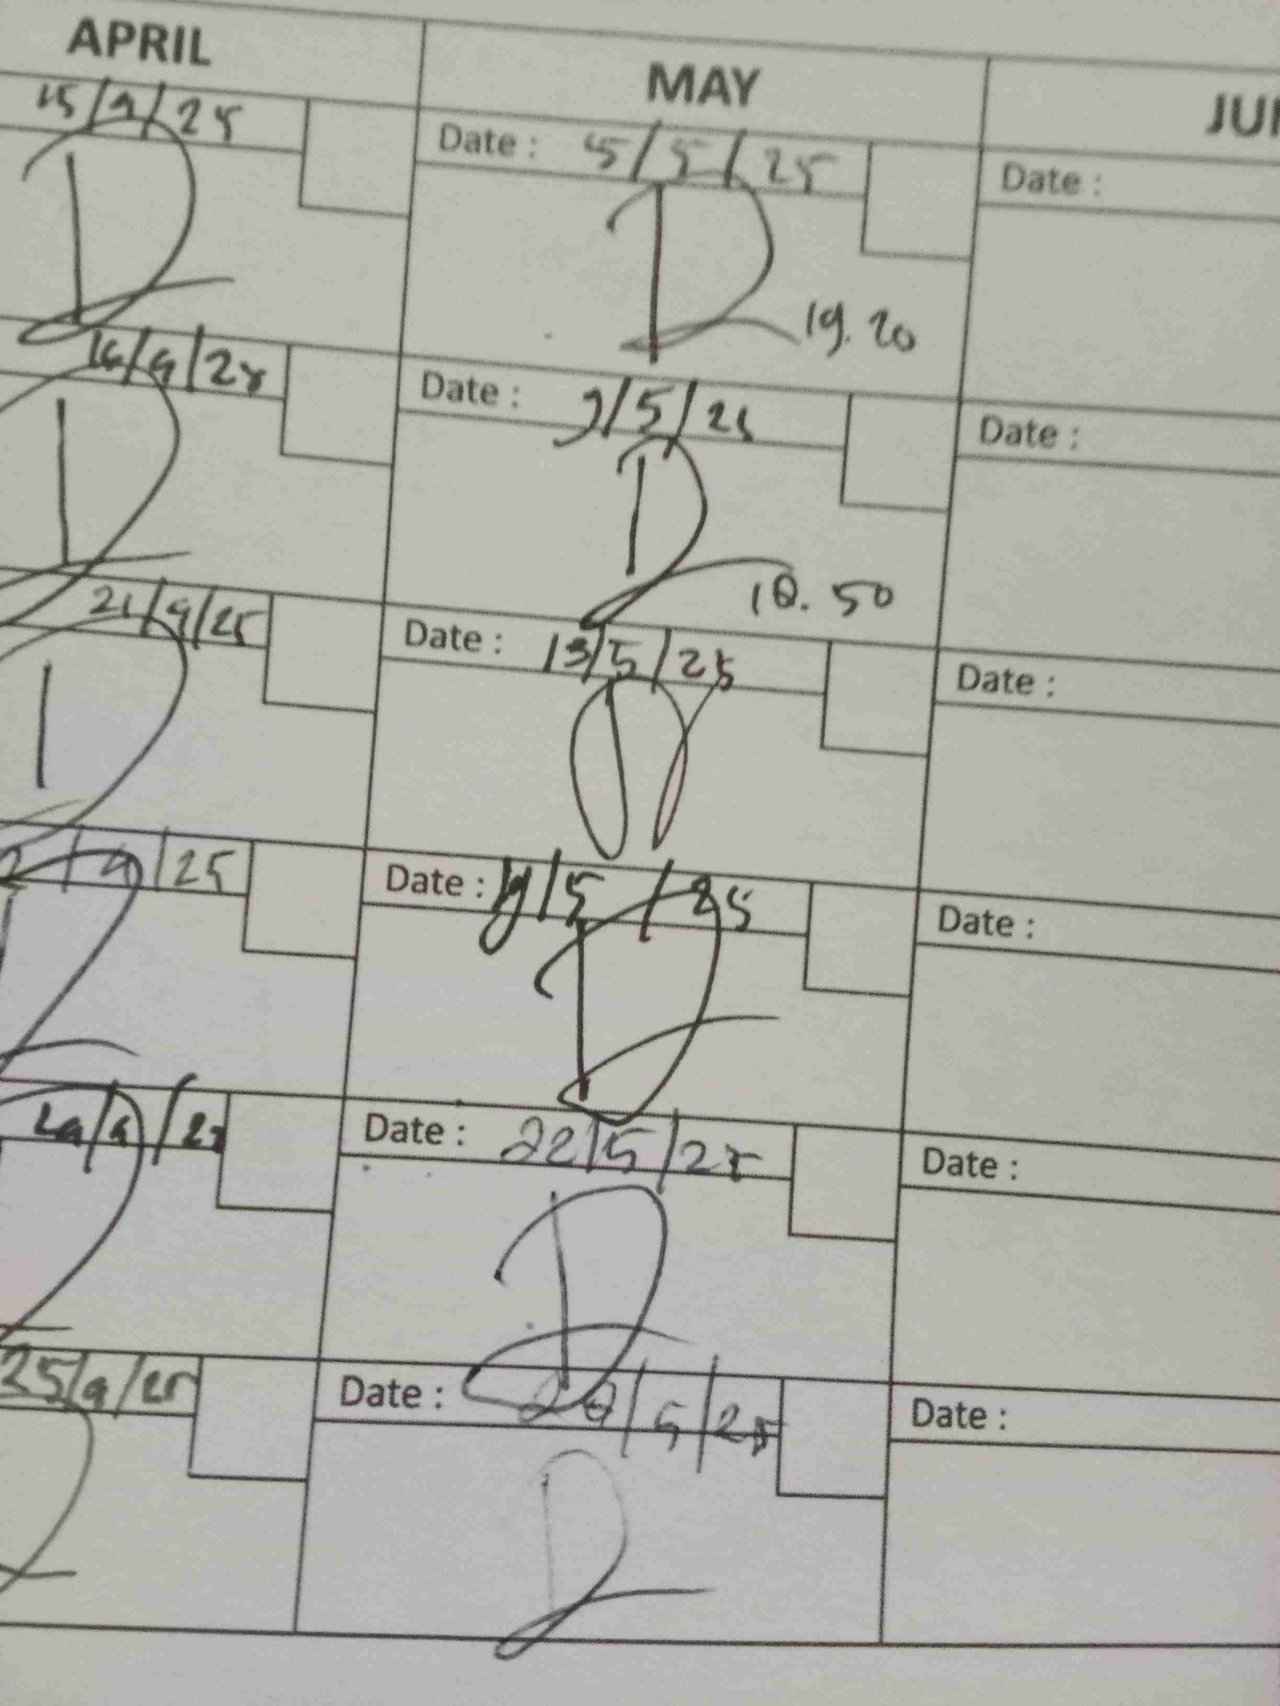 APRIL
15/4/25
16/4/25
21/4/25
/4/25
29/4/25
25/4/25
MAY
Date : 5/5/25
19.20
Date : 7/5/25
18.50
Date : 13/5/25
Date : 19/5/25
Date : 22/5/25
Date : 28/5/25
Date :
Date :
Date :
Date :
Date :
Date :